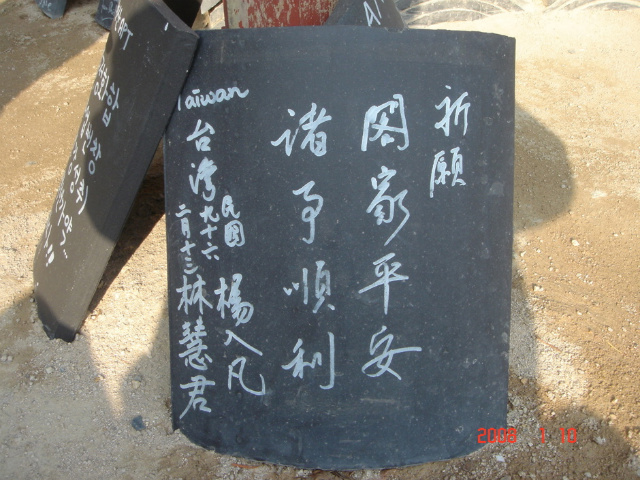 祈願
閤家平安
諸事順利
Taiwan
台湾
民國
九十六
二月十三
楊入凡
林慧君
2008 1 10